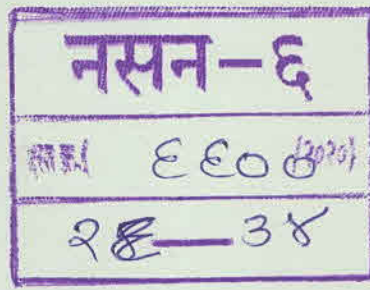 नसन-६
६६०० (२०२०)
— ३४